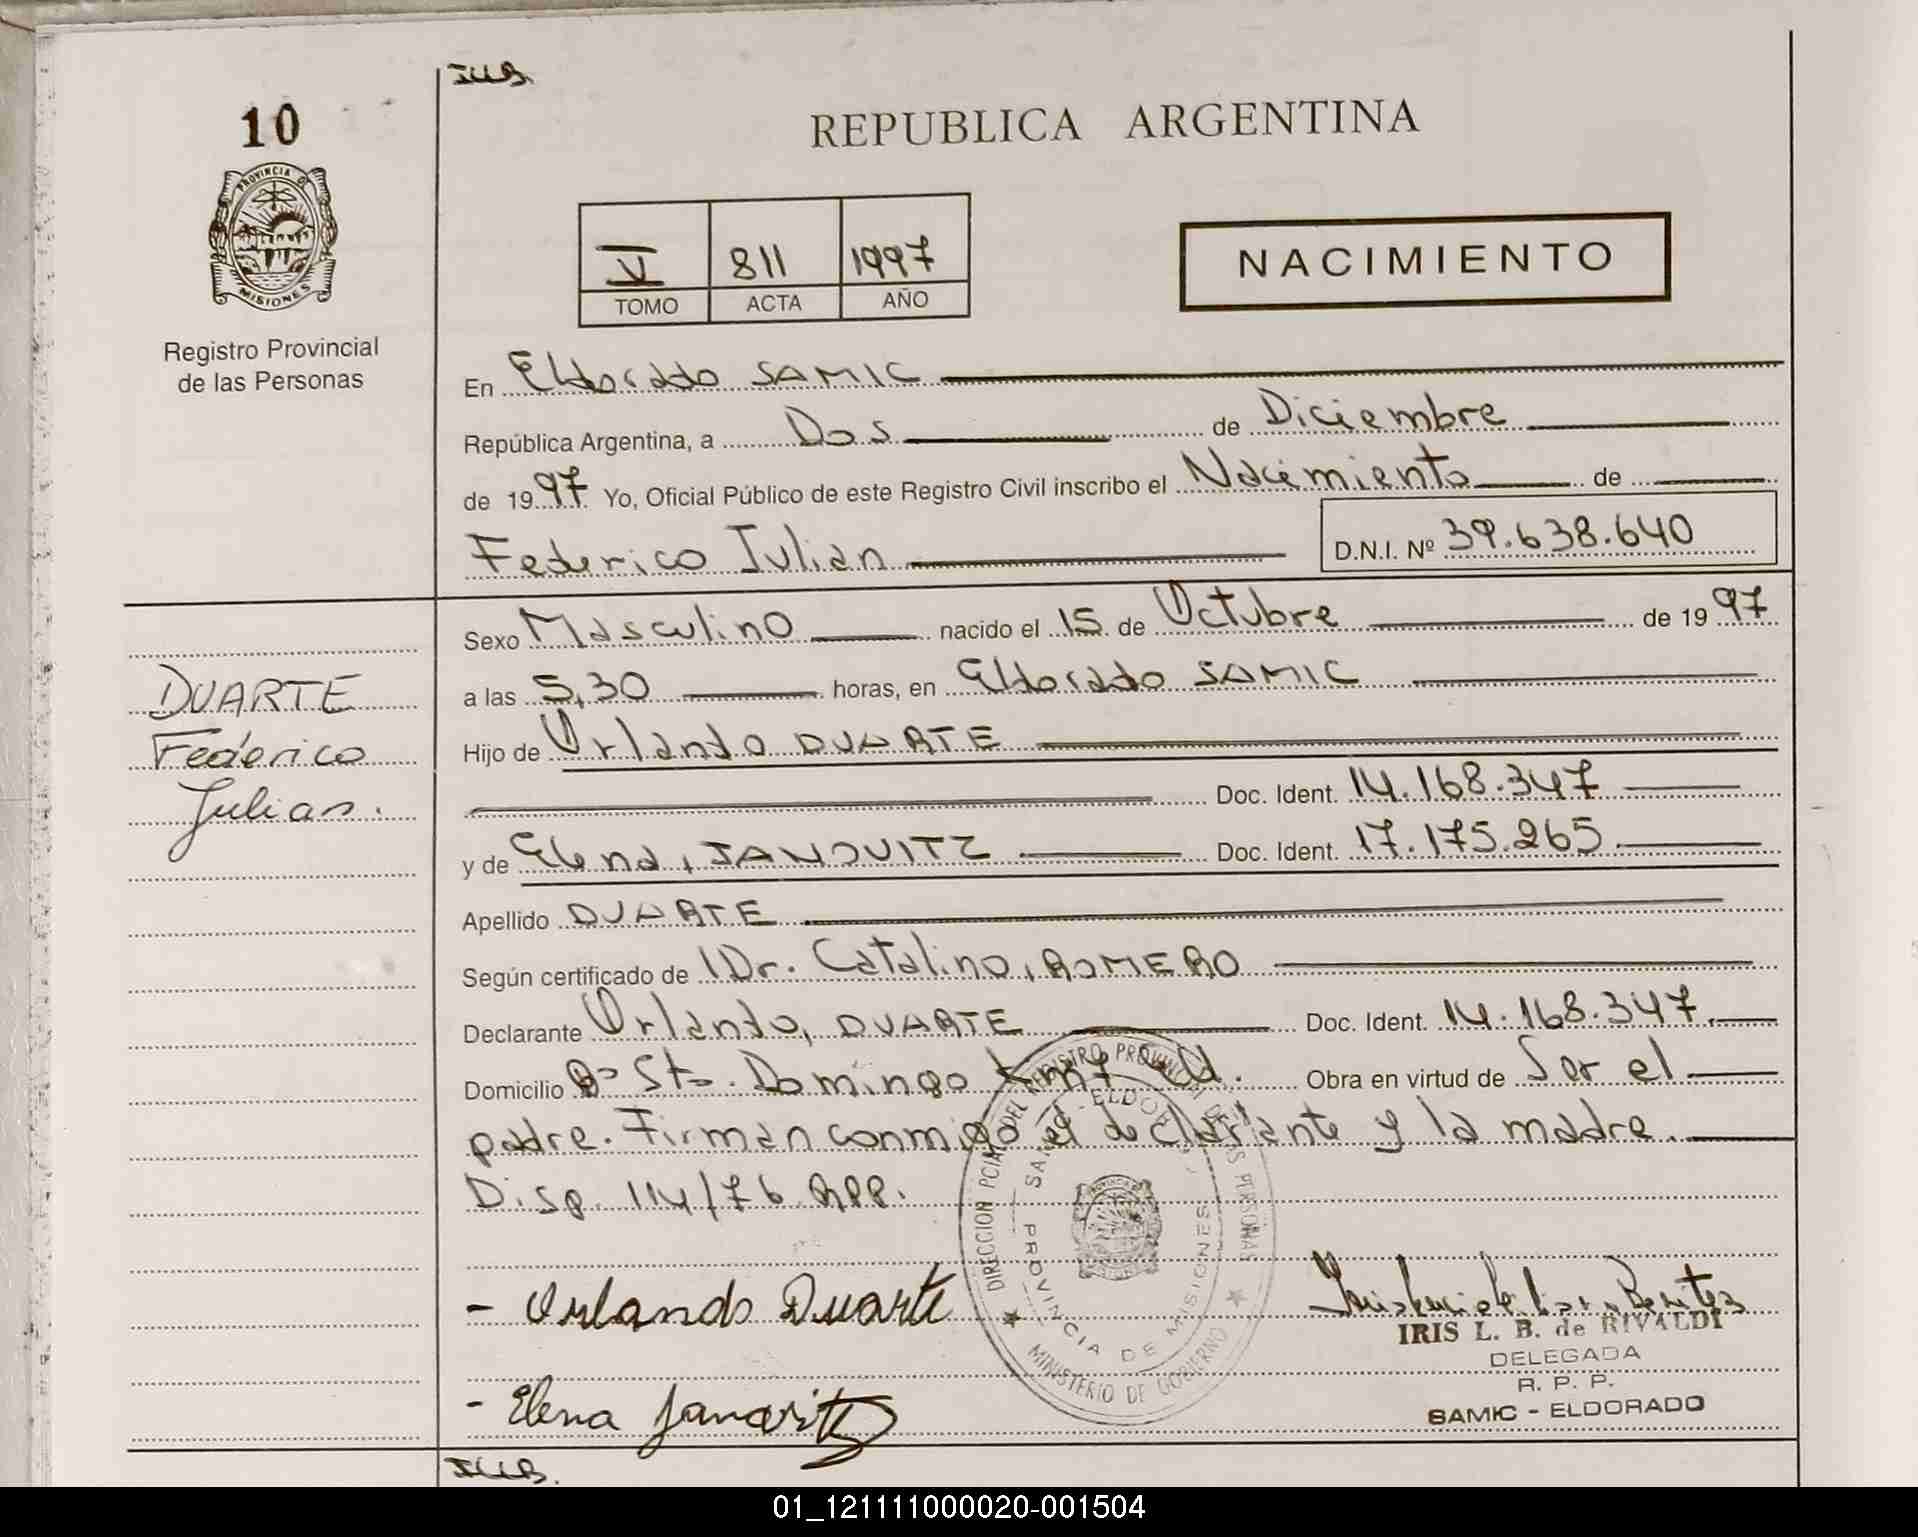 ILB.
10
REPUBLICA ARGENTINA
PROVINCIA D
MISIONES
Registro Provincial
de las Personas
V 811 1997
TOMO ACTA AÑO
NACIMIENTO
En Eldorado SAMIC
República Argentina, a Dos de Diciembre
de 1997 Yo, Oficial Público de este Registro Civil inscribo el Nacimiento de
Federico Julian D.N.I. Nº 39.638.640
Sexo Masculino nacido el 15 de Octubre de 1997
a las 5,30 horas, en Eldorado SAMIC
Hijo de Orlando DUARTE
Doc. Ident. 14.168.347
y de Elena, JANOVITZ Doc. Ident. 17.175.265
Apellido DUARTE
Según certificado de Dr. Catalino, ROMERO
Declarante Orlando, DUARTE Doc. Ident. 14.168.347.
Domicilio Bº Sto. Domingo km 7 Eld. Obra en virtud de Ser el
padre. Firman conmigo el declarante y la madre.
Disp. 114/76 RPP.
DUARTE
Federico
Julian.
DIRECCION PCIAL DEL REGISTRO PROVINCIAL DE LAS PERSONAS
ELDORADO
PROVINCIA DE MISIONES
MINISTERIO DE GOBIERNO
- Orlando Duarte
- Elena Janovitz
IRIS L. B. de RIVALDI
DELEGADA
R. P. P.
SAMIC - ELDORADO
ILB.
01_121111000020-001504